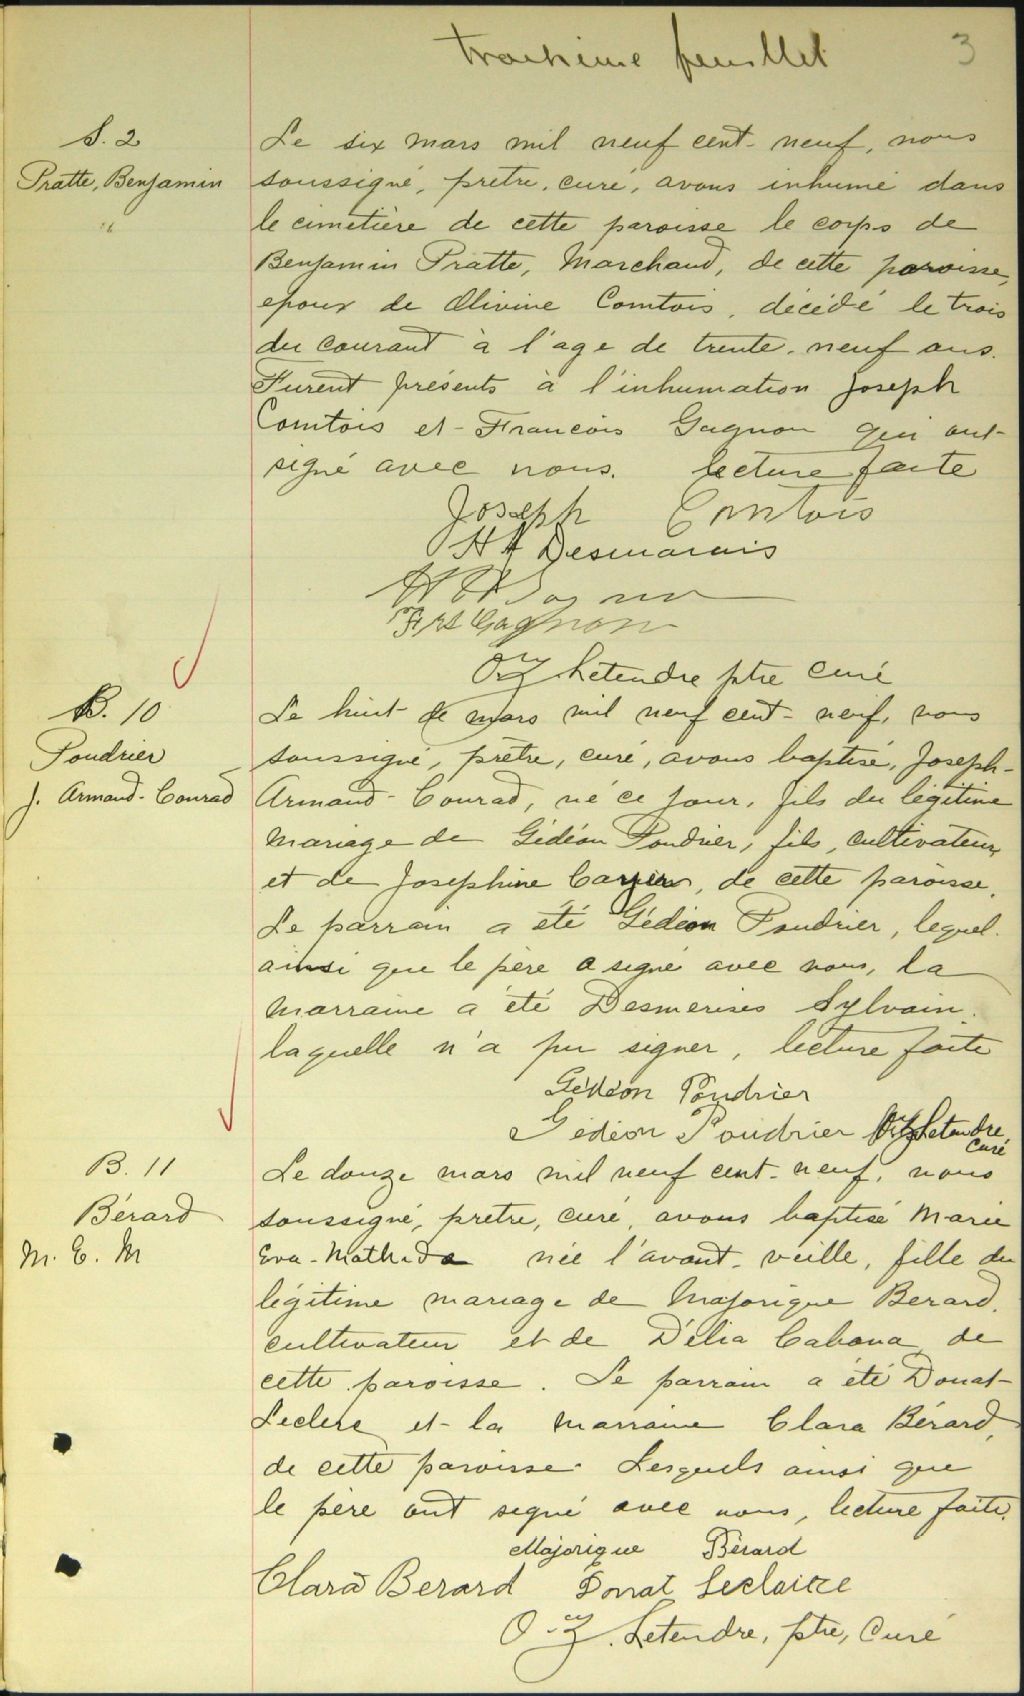 troisième feuillet 3
S. 2
Pratte, Benjamin
Le six mars mil neuf cent-neuf, nous
soussigné, prêtre, curé, avons inhumé dans
le cimetière de cette paroisse le corps de
Benjamin Pratte, Marchand, de cette paroisse,
epoux de Olivine Comtois, décédé le trois
du courant à l'age de trente-neuf ans.
Furent présents à l'inhumation Joseph
Comtois et François Gagnon qui ont
signé avec nous. lecture faite
Joseph Comtois
H A Desmarais
Frs Gagnon
Orz Letendre ptre curé
B. 10
Poudrier
J. Armand-Conrad
Le huit de mars mil neuf cent-neuf, nous
soussigné, prêtre, curé, avons baptisé, Joseph-
Armand-Conrad, né ce jour, fils du légitime
mariage de Gédéon Poudrier, fils, cultivateur,
et de Josephine, de cette paroisse.
Le parrain a été Gédéon Poudrier, lequel
ainsi que le père a signé avec nous, la
marraine a été Desmerises Sylvain
laquelle n'a pu signer, lecture faite
Gédéon Poudrier
Gédéon Poudrier Orz Letendre
Curé
B. 11
Bérard
M. E. M
Le douze mars mil neuf cent-neuf, nous
soussigné, prêtre, curé, avons baptisé Marie
Eva-Mathilda née l'avant-veille, fille du
légitime mariage de Majorique Berard,
cultivateur et de Délia Cabana, de
cette paroisse. Le parrain a été Donat
Leclerc et la marraine Clara Bérard,
de cette paroisse. Lesquels ainsi que
le père ont signé avec nous, lecture faite.
Majorique Bérard
Clara Berard Donat Leclaire
Orz. Letendre, ptre, Curé